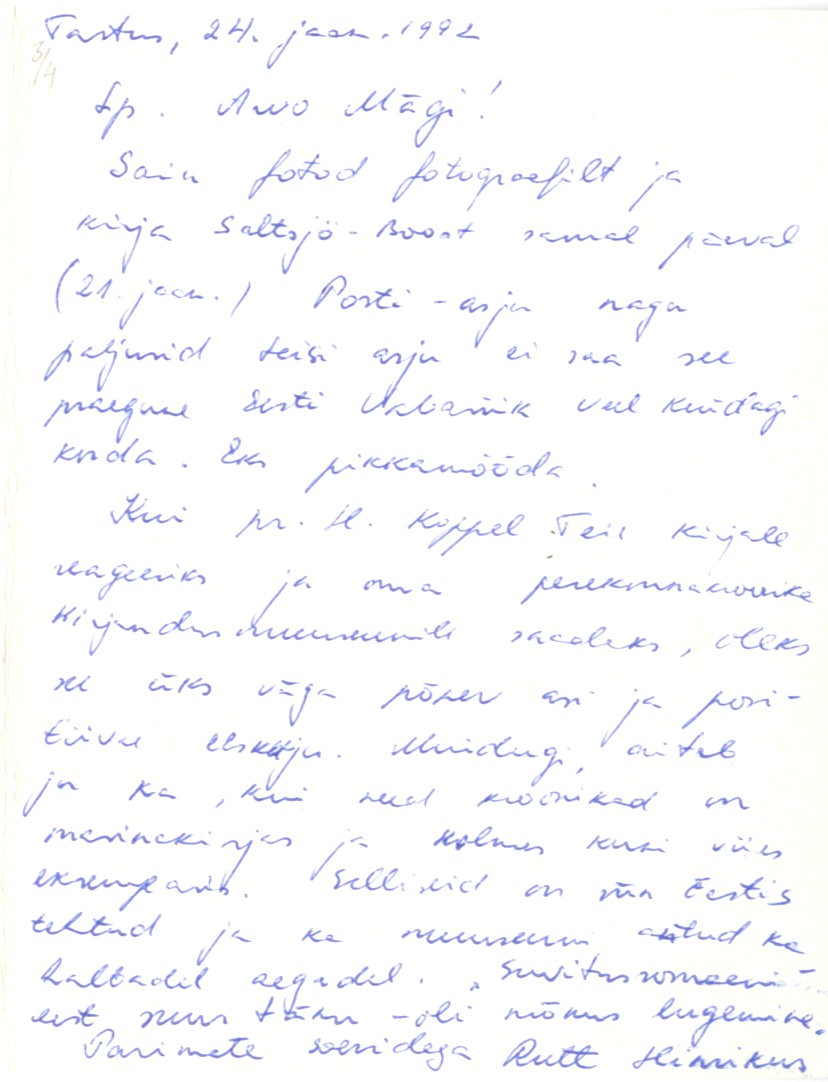 Tartus, 24. jaan. 1992
3/4
Lp. Arvo Mägi!
Sain fotod fotograafilt ja
kirja Saltsjö-Boost samal päeval
(21. jaan.) Posti-asju nagu
paljusid teisi asju ei saa see
praegune Eesti Vabariik veel kuidagi
korda. Eks pikkamööda.
Kui pr. H. Koppel Teie kirjale
reageeriks ja oma perekonnakroonika
Kirjandusmuuseumile saadaks, oleks
see üks väga põnev asi ja posi-
tiivne eeskuju. Muidugi, aitab
ju ka, kui need kroonikad on
masinakirjas ja kolmes kuni viies
eksemplaris. Selliseid on siin Eestis
tehtud ja ka muuseumi antud ka
halbadel aegadel. "Suvitusromaani"
eest suur tänu - oli mõnus lugemine.
Parimate soovidega Rutt Hinrikus